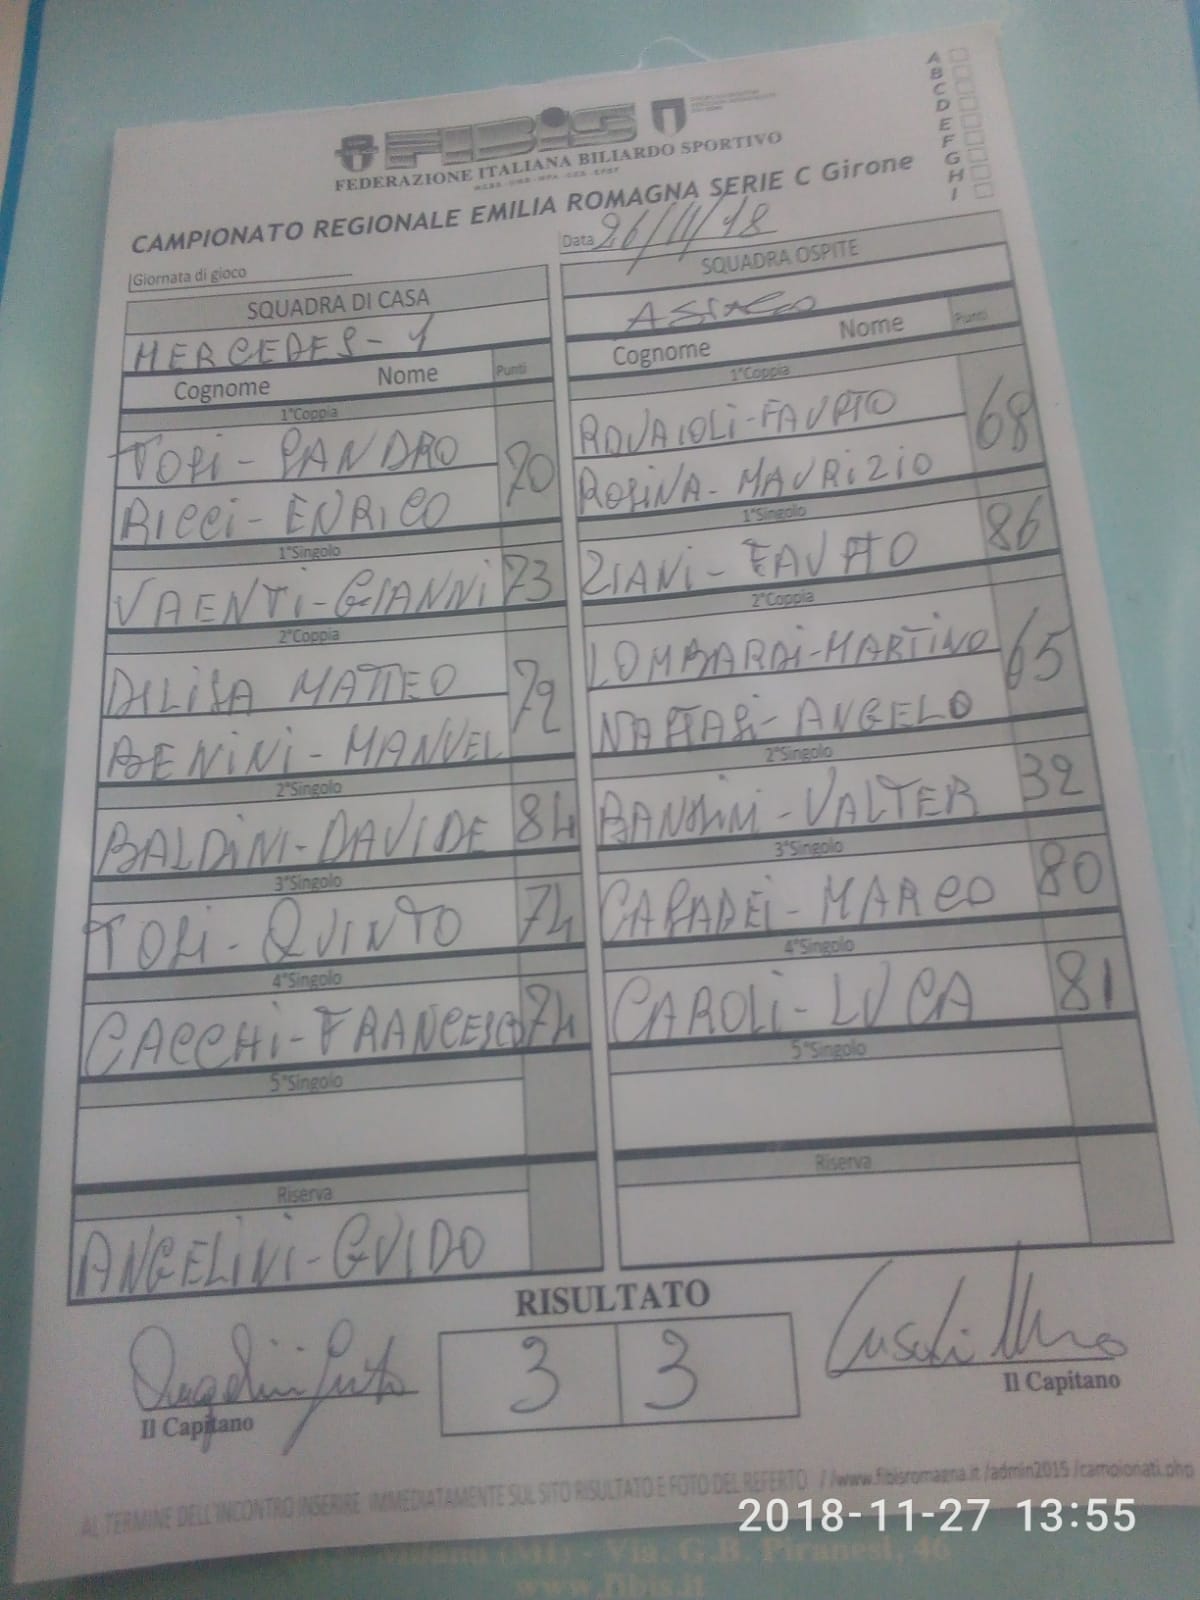 A
B
C
D
E
F
G
H
I
FIBiS
FEDERAZIONE ITALIANA BILIARDO SPORTIVO
CAMPIONATO REGIONALE EMILIA ROMAGNA SERIE C Girone
Giornata di gioco
Data 26/11/18
SQUADRA DI CASA
MERCEDES-1
Cognome Nome Punti
1°Coppia
TOSi-SANDRO 70
RICCi-ENRICO
1°Singolo
VAENTi-GIANNi 73
2°Coppia
DILISA MATTEO 72
BENiNi-MANUEL
2°Singolo
BALDiNi-DAVIDE 84
3°Singolo
TOSi-QUINTO 74
4°Singolo
CACCHi-FRANCESCO 74
5°Singolo
Riserva
ANGELiNi-GUIDO
SQUADRA OSPITE
Cognome Nome Punti
1°Coppia
ROVAIOLi-FAUSTO 68
ROSiNA-MAURiZIO
1°Singolo
ZIANi-FAUSTO 86
2°Coppia
LOMBARDi-MARTINO 65
NASTASi-ANGELO
2°Singolo
BANDiNi-VALTER 32
3°Singolo
CASADEi-MARCO 80
4°Singolo
CAROLi-LUCA 81
5°Singolo
Riserva
RISULTATO
3 3
Il Capitano
Il Capitano
AL TERMINE DELL'INCONTRO INSERIRE IMMEDIATAMENTE SUL SITO RISULTATO E FOTO DEL REFERTO //www.fibisromagna.it /admin2015 /campionati.php
2018-11-27 13:55
(MI) - Via. G.B. Piranesi, 46
www.fibis.it